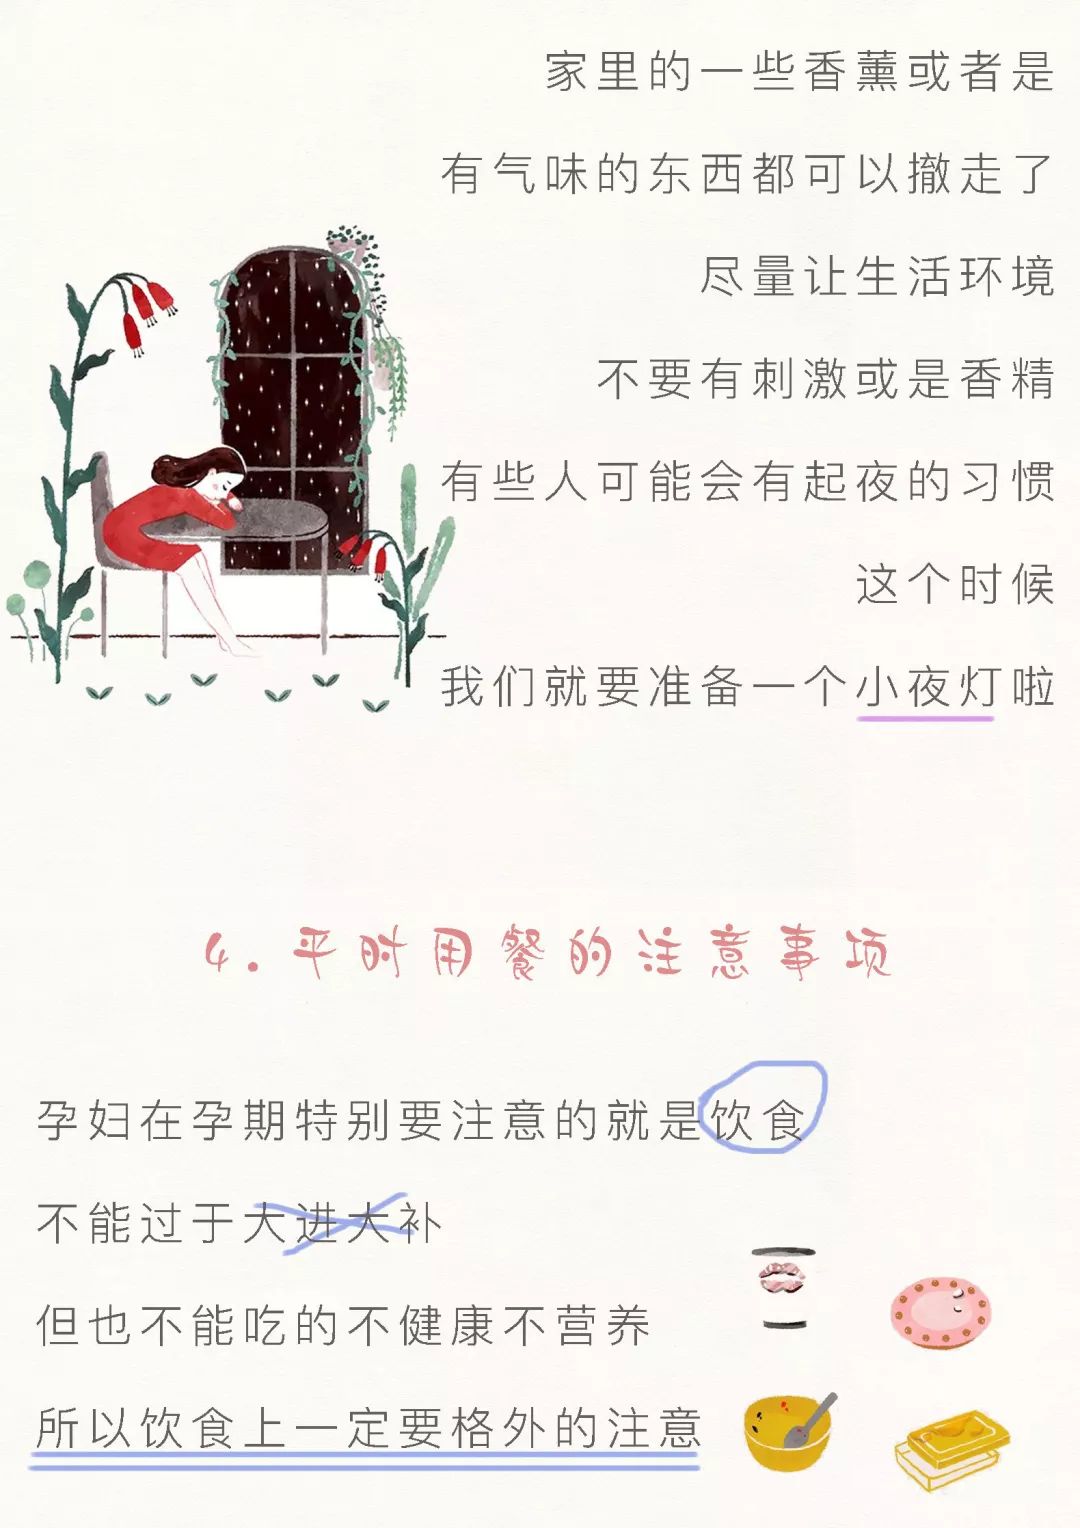 家里的一些香薰或者是
有气味的东西都可以撤走了
尽量让生活环境
不要有刺激或是香精
有些人可能会有起夜的习惯
这个时候
我们就要准备一个小夜灯啦
4.平时用餐的注意事项
孕妇在孕期特别要注意的就是饮食
不能过于大进大补
但也不能吃的不健康不营养
所以饮食上一定要格外的注意